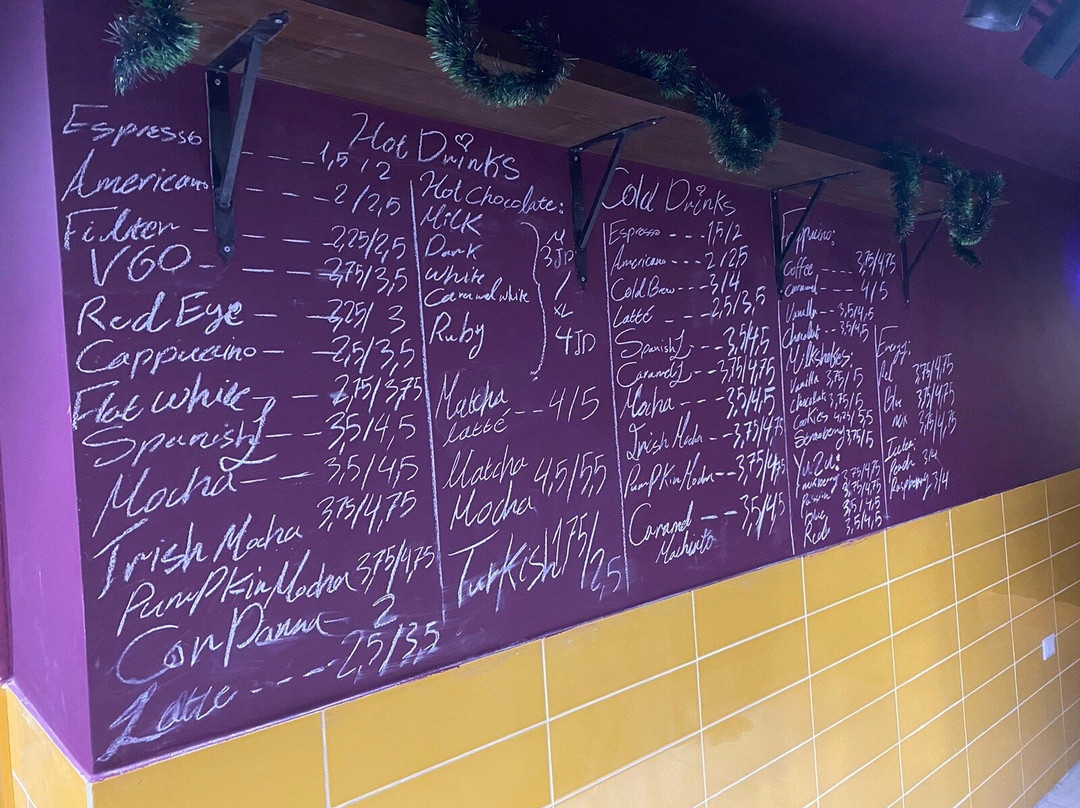 Hot Drinks
Espresso ---- 1,5/2
Americano --- 2/2,5
Filter --- 2,25/2,5
V60 ---- 2,75/3,5
Red Eye --- 2,25/3
Cappuccino --- 2,5/3,5
Flat white --- 2,75/3,75
Spanish L --- 3,5/4,5
Mocha --- 3,5/4,5
Irish Mocha 3,75/4,75
PumpKin Mocha 3,75/4,75
Con Panna - 2
Latte ---- 2,5/3,5
Hot Chocolate:
Milk
Dark
white
Caramel white
Ruby
M
3JD
/
XL
4JD
Matcha
latté -- 4/5
Matcha 4,5/5,5
Mocha
Turkish 1,75/
2,5
Cold Drinks
Espresso --- 1,5/2
Americano -- 2/2,5
Cold Brew -- 3/4
Latté -- 2,5/3,5
Spanish L -- 3,5/4,5
Caramel L -- 3,75/4,75
Mocha --- 3,5/4,5
Irish Mocha -- 3,75/4,75
PumpKin Mocha -- 3,75/4,75
Caramel -- 3,5/4,5
Machiato
Coffee ---- 3,75/4,75
Caramel ---- 4/5
Vanilla -- 3,5/4,5
Chocolat -- 3,5/4,5
Milkshakes:
Vanilla 3,75/5
Chocolate 3,75/5
Cookies 4,25/5,5
Strawberry 3,75/5
Yuzu:
3,75/4,75
Passion 3,75/4,75
Blue 3,5/4,5
Red 3,5/4,5
Energy:
Red 3,75/4,75
Blue 3,75/4,75
3,75/4,75
Peach 3/4
Raspberry 3/4